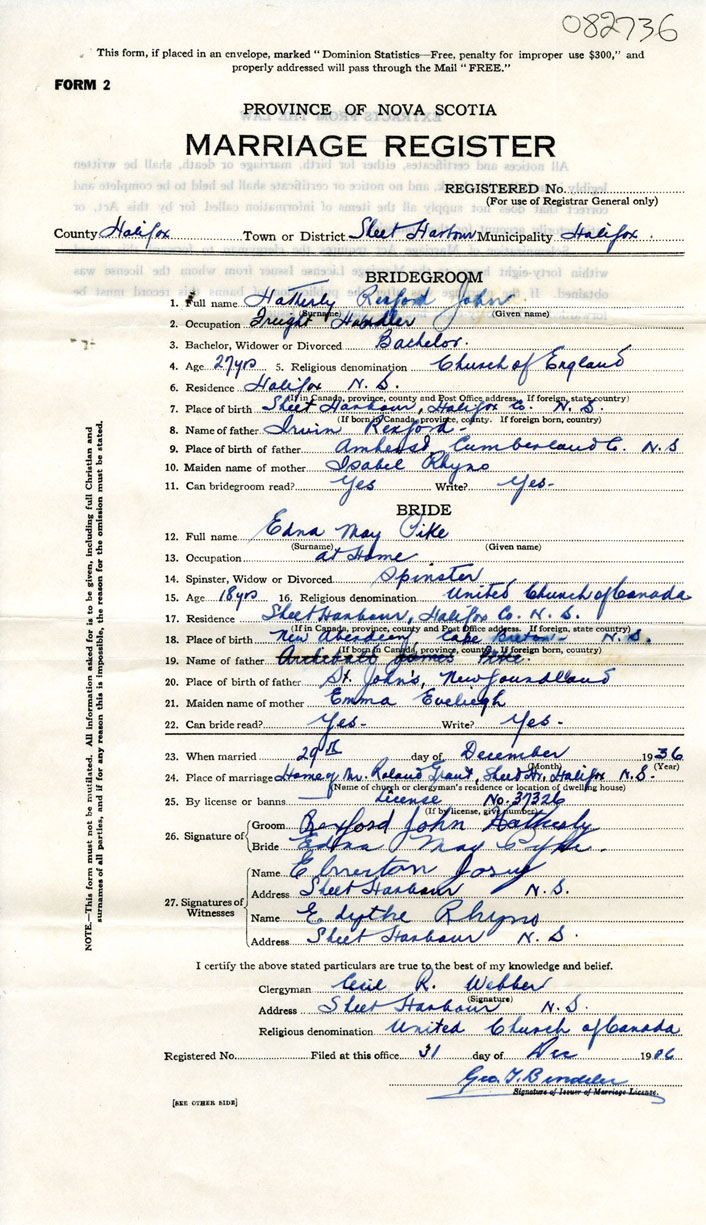 082736
This form, if placed in an envelope, marked "Dominion Statistics—Free, penalty for improper use $300," and
properly addressed will pass through the Mail "FREE."
FORM 2
PROVINCE OF NOVA SCOTIA
MARRIAGE REGISTER
REGISTERED No.
(For use of Registrar General only)
County Halifax Town or District Sheet Harbour Municipality Halifax
BRIDEGROOM
1. Full name Hatherly Rexford John
(Surname) (Given name)
2. Occupation Freight Handler
3. Bachelor, Widower or Divorced Bachelor.
4. Age 27yrs 5. Religious denomination Church of England
6. Residence Halifax N. S.
(If in Canada, province, county and Post Office address. If foreign, state country)
7. Place of birth Sheet Harbour, Halifax Co. N. S.
(If born in Canada, province, county. If foreign born, country)
8. Name of father Irwin Rexford
9. Place of birth of father Amherst Cumberland Co. N. S
10. Maiden name of mother Isabel Rhyno
11. Can bridegroom read? Yes Write? Yes-
BRIDE
12. Full name Edna May Pike
(Surname) (Given name)
13. Occupation at Home
14. Spinster, Widow or Divorced Spinster
15. Age 18yrs 16. Religious denomination United Church of Canada
17. Residence Sheet Harbour, Halifax Co. N. S.
(If in Canada, province, county and Post Office address. If foreign, state country)
18. Place of birth New Aberdeen, Cape Breton N. S.
(If born in Canada, province, county. If foreign born, country)
19. Name of father James Pike.
20. Place of birth of father St. John's, Newfoundland
21. Maiden name of mother Emma
22. Can bride read? Yes- Write? Yes-
23. When married 29th day of December 1936
(Month) (Year)
24. Place of marriage Home of Mr. Roland Grant, Sheet Hr. Halifax N. S.
(Name of church or clergyman's residence or location of dwelling house)
25. By license or banns License No. 37326
(If by license, give number)
26. Signature of
Groom Rexford John Hatherly
Bride Edna May
27. Signatures of Witnesses
Name
Address Sheet Harbour N. S.
Name Edythe Rhyno
Address Sheet Harbour N. S.
I certify the above stated particulars are true to the best of my knowledge and belief.
Clergyman Cecil R. Webber
(Signature)
Address Sheet Harbour N. S.
Religious denomination United Church of Canada
Registered No. Filed at this office 31 day of Dec 1936
Geo. T.
Signature of Issuer of Marriage License.
[SEE OTHER SIDE]
NOTE.—This form must not be mutilated. All information asked for is to be given, including full Christian and
surnames of all parties, and if for any reason this is impossible, the reason for the omission must be stated.